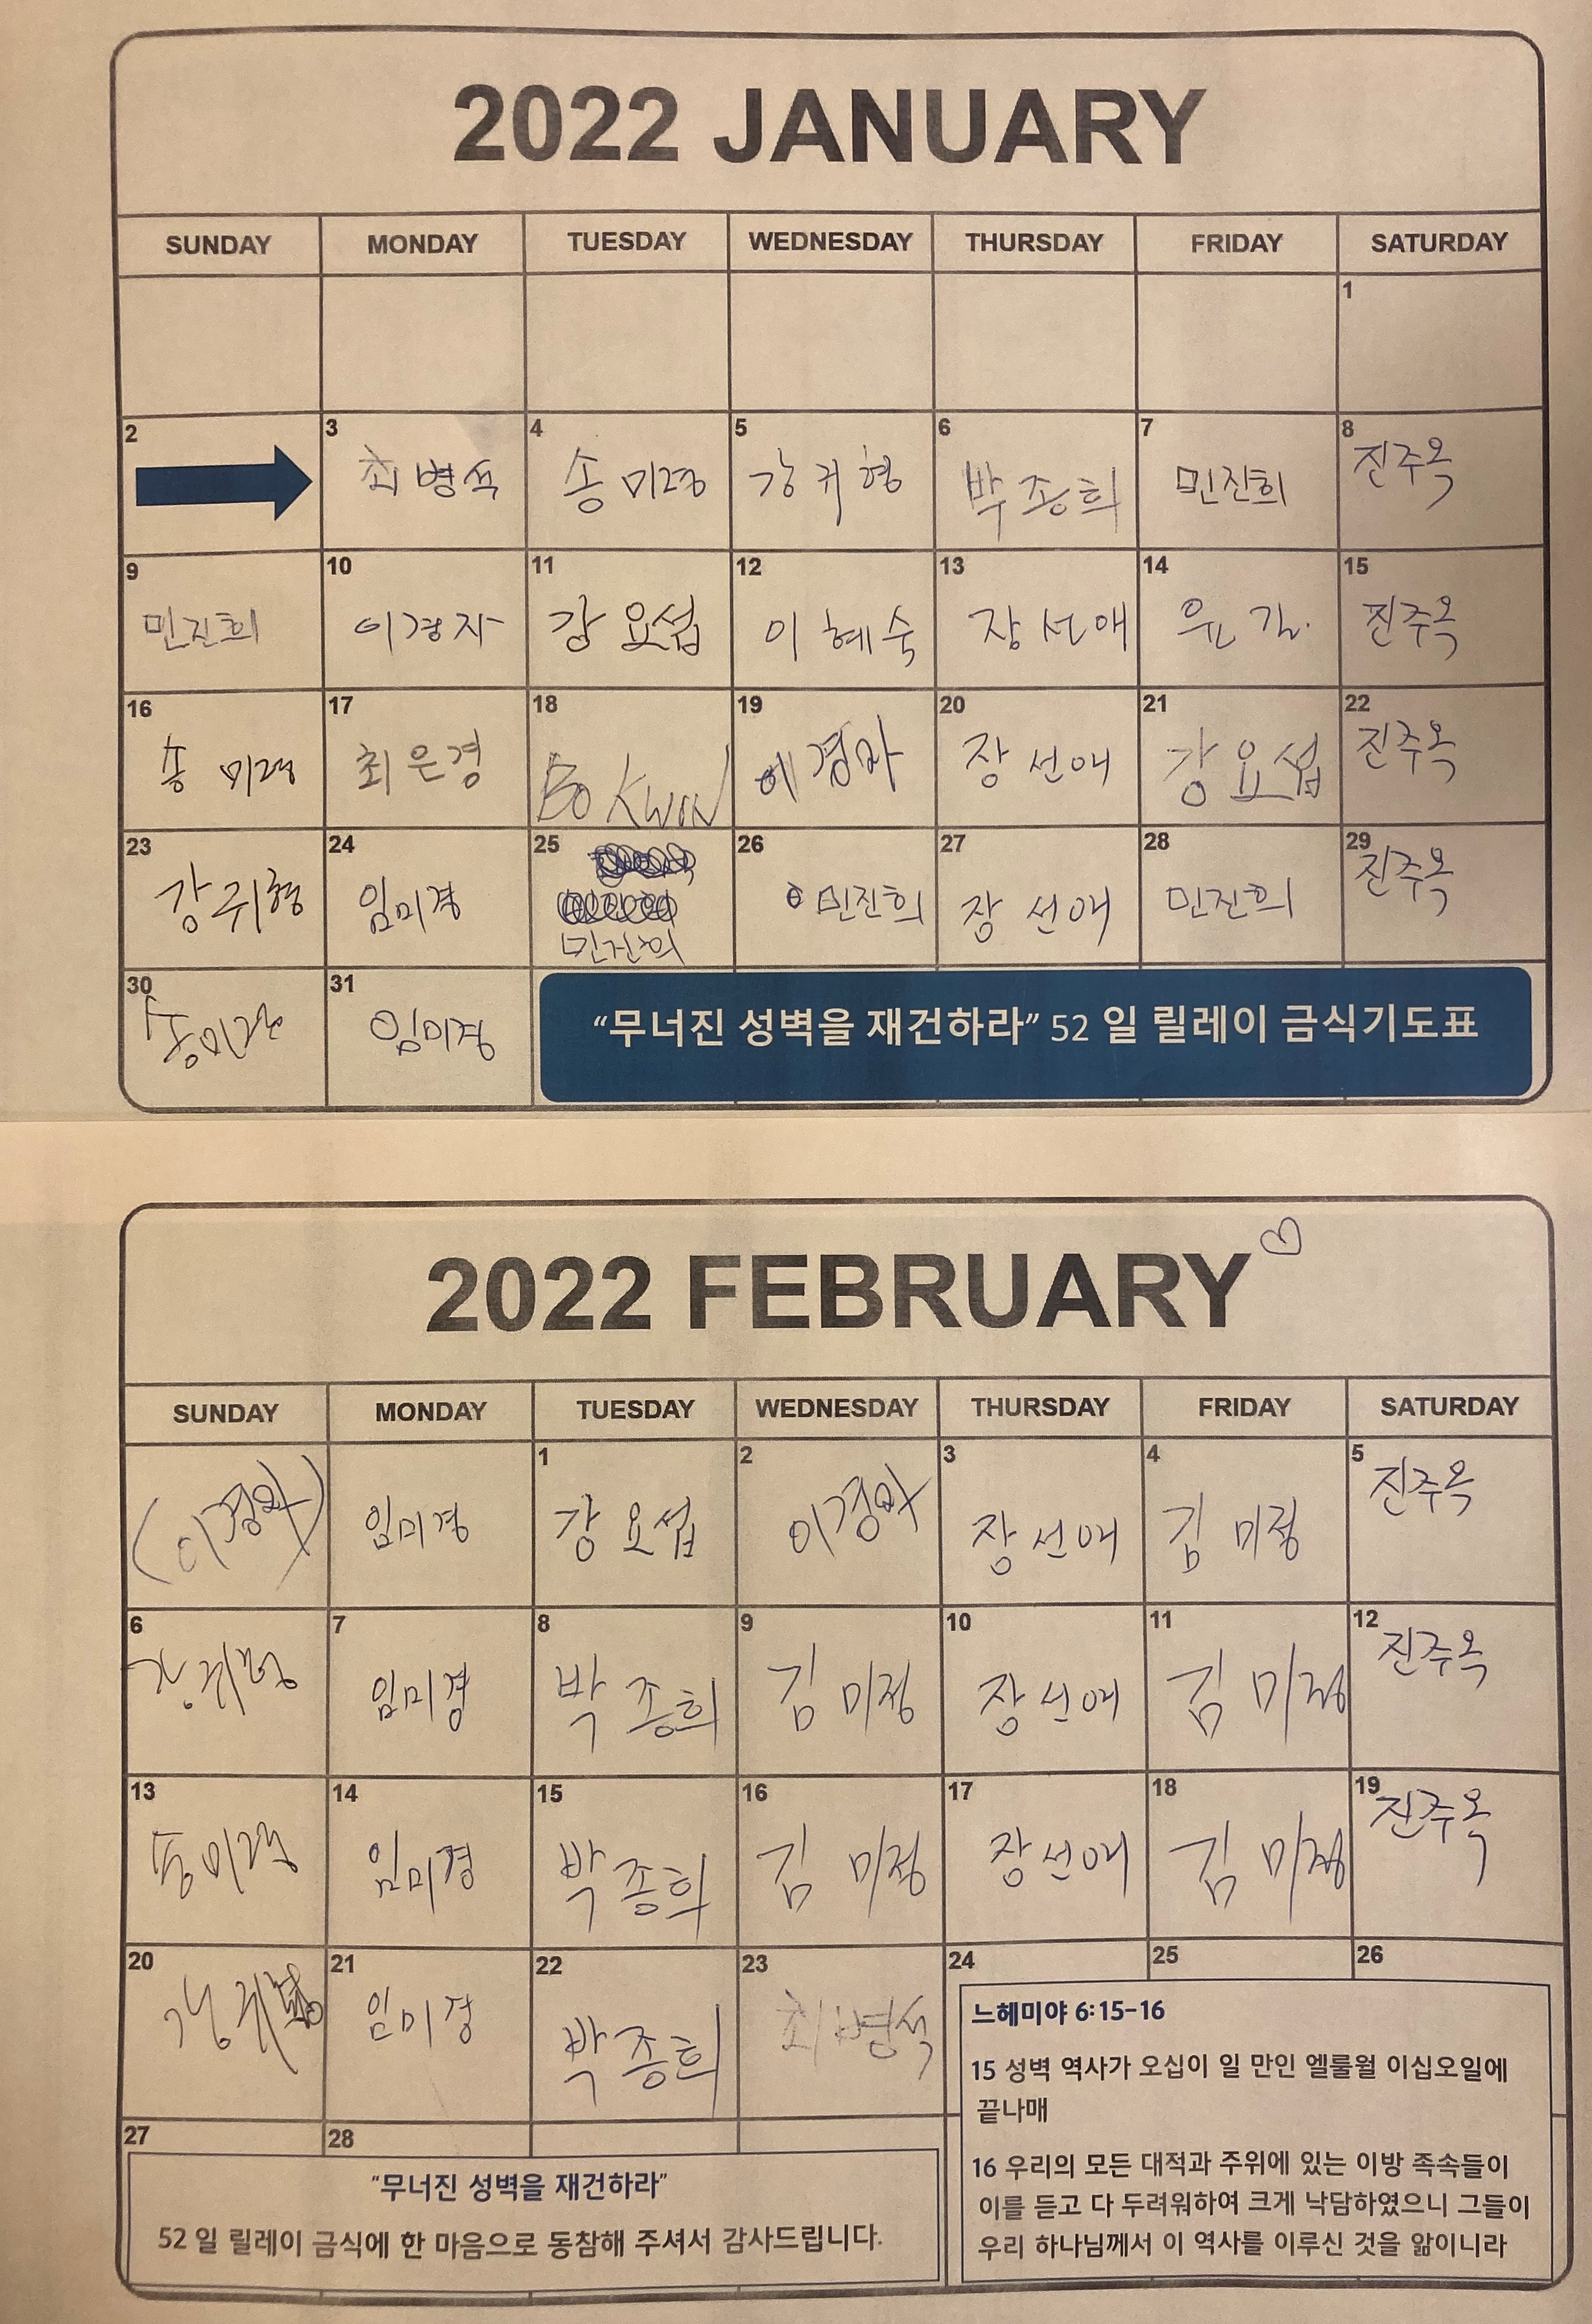 2022 JANUARY
SUNDAY MONDAY TUESDAY WEDNESDAY THURSDAY FRIDAY SATURDAY
1
2 3 4 5 6 7 8
최병석 송미경 강귀형 박종희 민진희 진주옥
9 10 11 12 13 14 15
민진희 이경자 강요섭 이혜숙 장선애 진주옥
16 17 18 19 20 21 22
송미경 최은경 BO KWON 이경아 장선애 강요섭 진주옥
23 24 25 26 27 28 29
강귀형 임미경 민진희 민진희 장선애 민진희 진주옥
30 31
송미경 임미경
“무너진 성벽을 재건하라” 52 일 릴레이 금식기도표
2022 FEBRUARY
SUNDAY MONDAY TUESDAY WEDNESDAY THURSDAY FRIDAY SATURDAY
1 2 3 4 5
(이경아) 임미경 강요섭 이경아 장선애 김미정 진주옥
6 7 8 9 10 11 12
강귀형 임미경 박종희 김미정 장선애 김미정 진주옥
13 14 15 16 17 18 19
송미경 임미경 박종희 김미정 장선애 김미정 진주옥
20 21 22 23 24 25 26
강귀형 임미경 박종희 최병석
느헤미야 6:15-16
15 성벽 역사가 오십이 일 만인 엘룰월 이십오일에
끝나매
16 우리의 모든 대적과 주위에 있는 이방 족속들이
이를 듣고 다 두려워하여 크게 낙담하였으니 그들이
우리 하나님께서 이 역사를 이루신 것을 앎이니라
27 28
“무너진 성벽을 재건하라”
52 일 릴레이 금식에 한 마음으로 동참해 주셔서 감사드립니다.